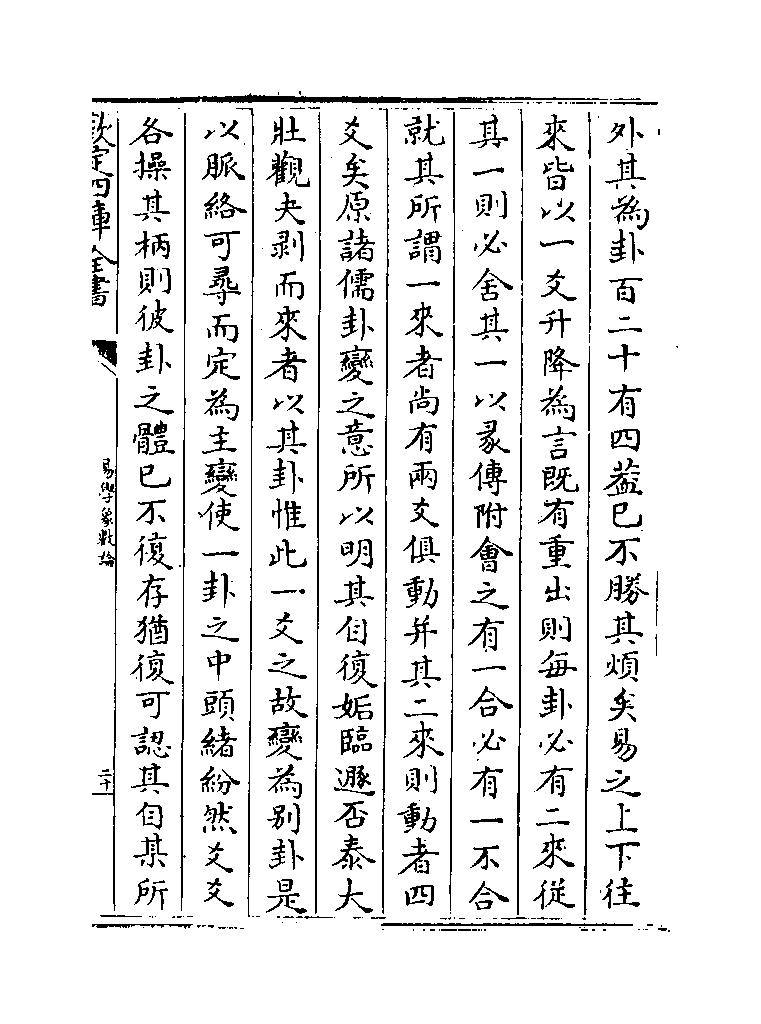 外其為卦百二十有四葢已不勝其煩矣易之上下往
來皆以一爻升降為言既有重出則每卦必有二來從
其一則必舍其一以彖傳附會之有一合必有一不合
就其所謂一來者尚有兩爻俱動并其二來則動者四
爻矣原諸儒卦變之意所以明其自復姤臨遯否泰大
壯觀夬剥而來者以其卦惟此一爻之故變為别卦是
以脈絡可尋而定為主變使一卦之中頭緒紛然爻爻
各操其柄則彼卦之體已不復存猶復可認其自某所
欽定四庫全書
易學象數論
二十